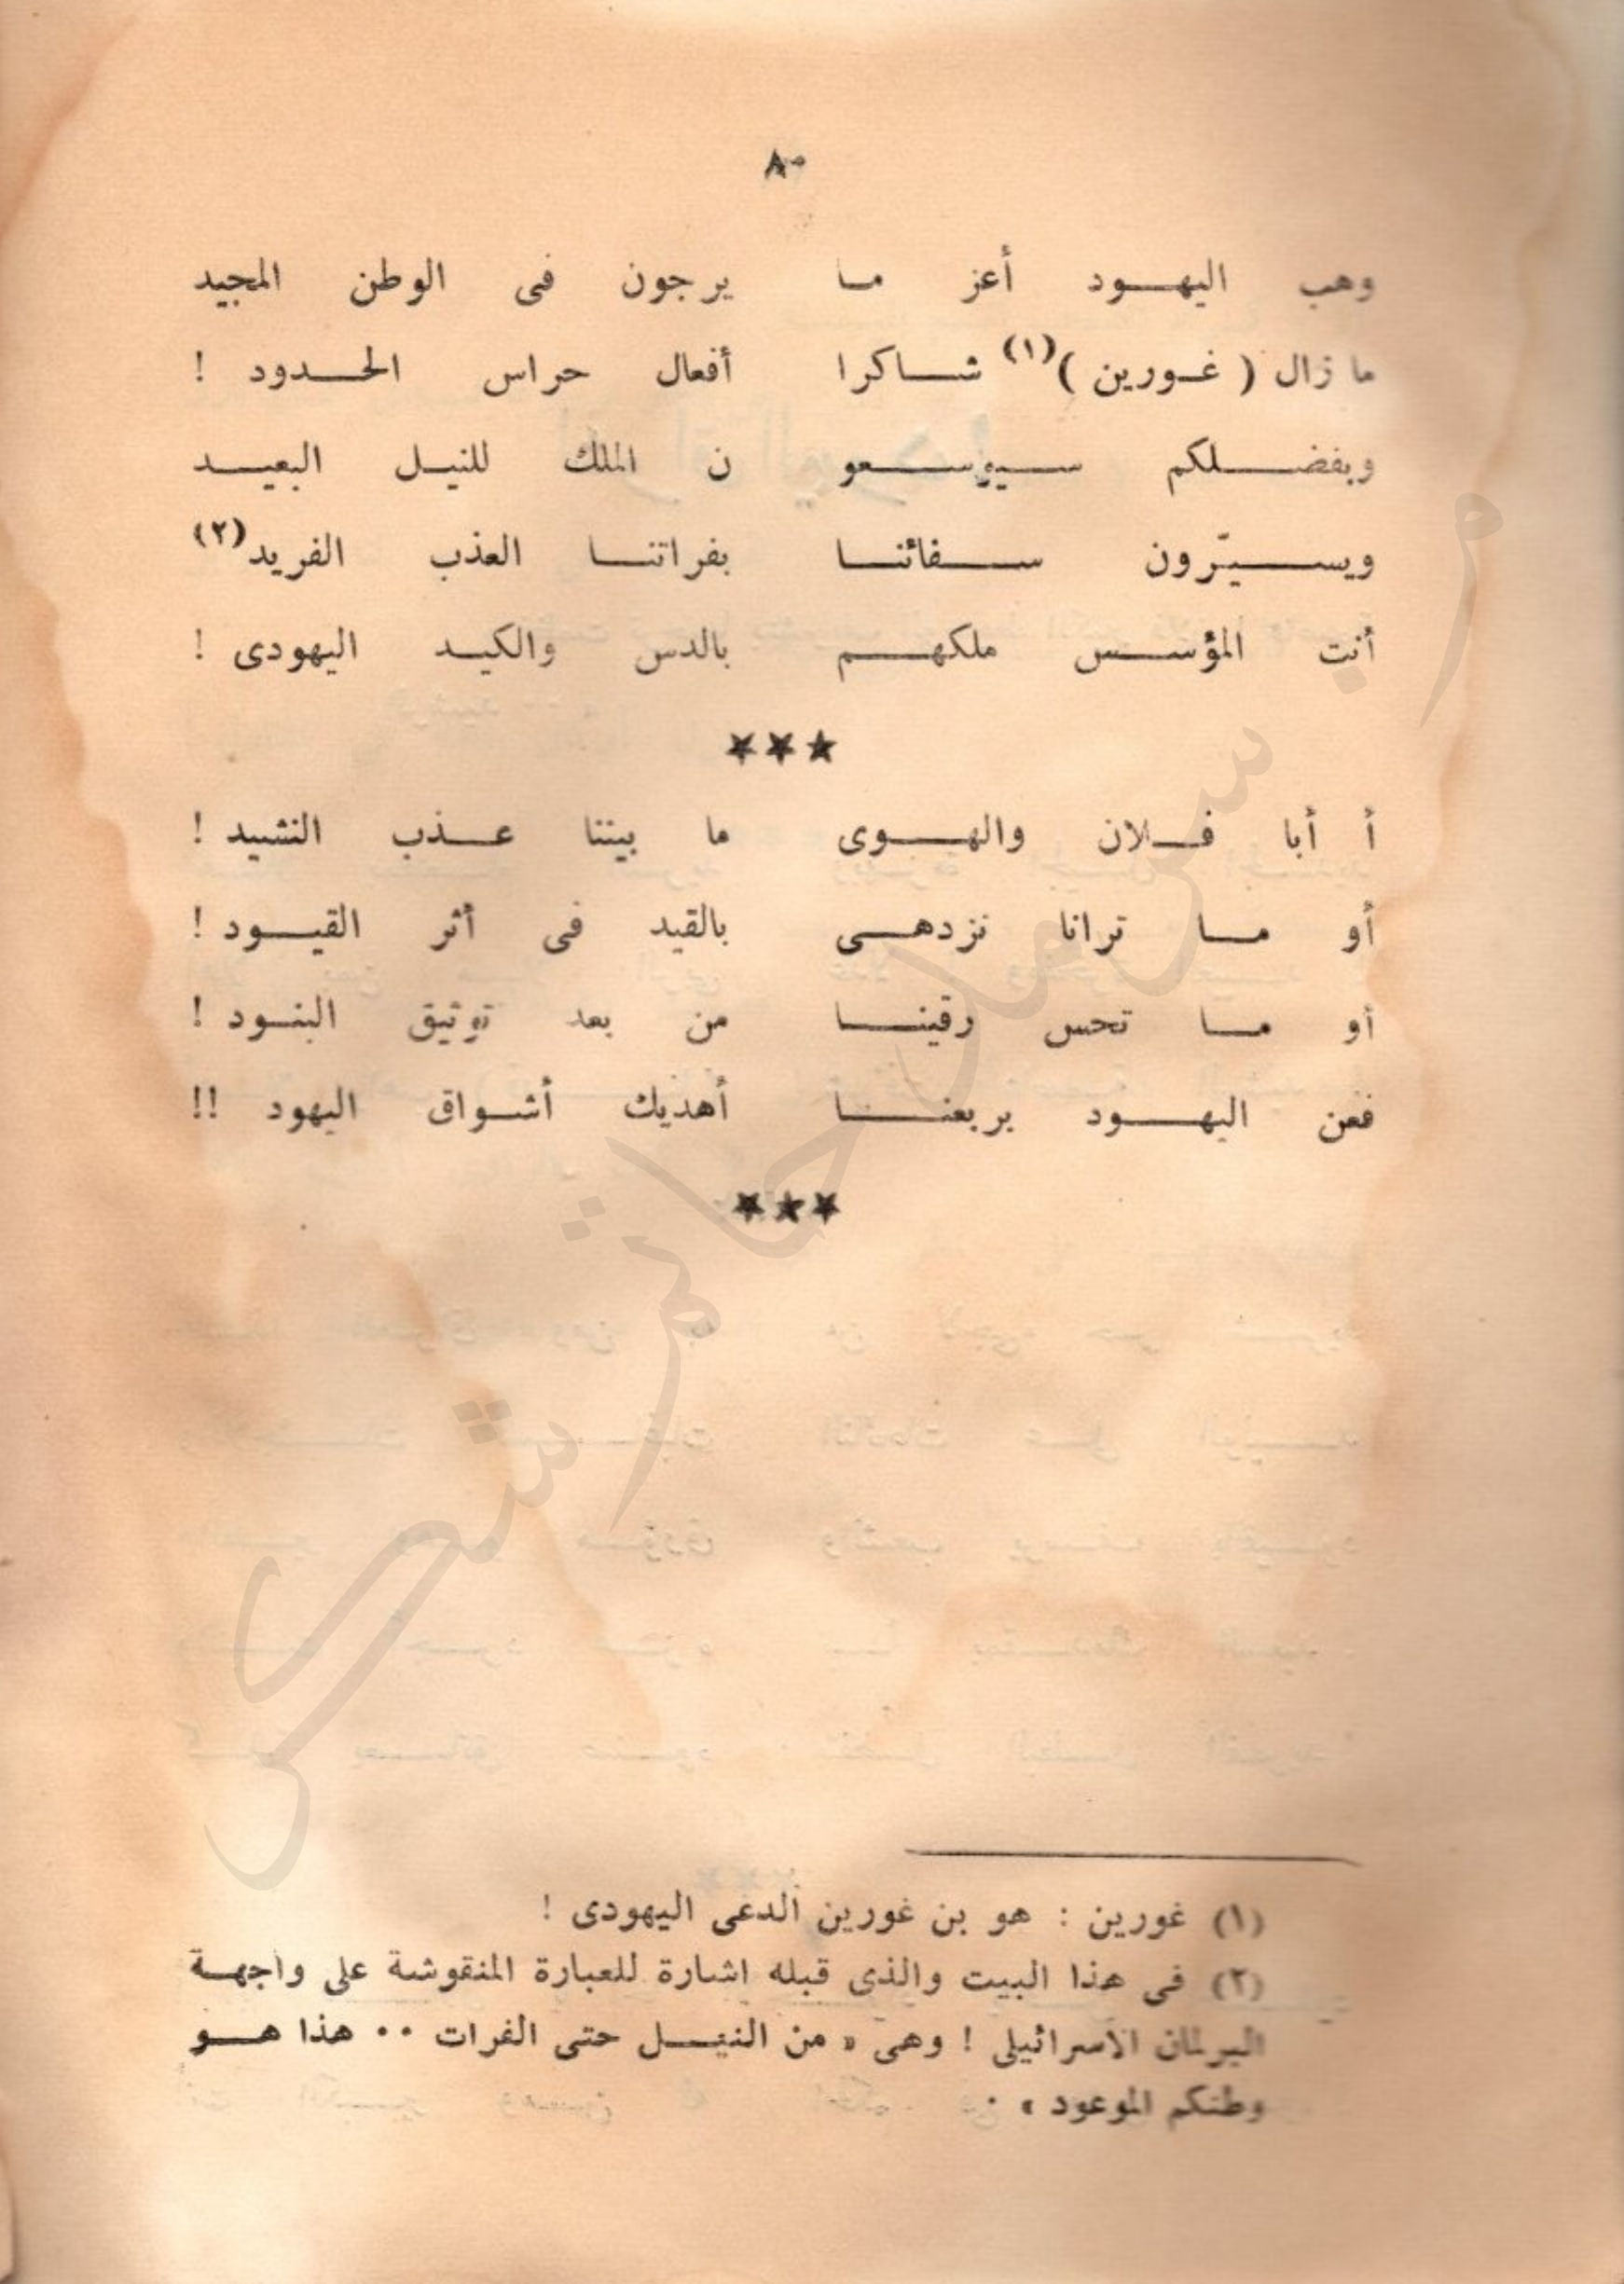 ٨٠
وهب اليهود أعز ما يرجون فى الوطن المجيد
ما زال ( غورين )(١) شاكرا أفعال حراس الحدود !
وبفضلكم سيوسعو ن الملك للنيل البعيد
ويسيّرون سفائنا بفراتنا العذب الفريد(٢)
أنت المؤسس ملكهم بالدس والكيد اليهودى !
***
أ أبا فلان والهوى ما بيننا عذب النشيد !
أو ما ترانا نزدهى بالقيد فى أثر القيود !
أو ما تحس رقينا من بعد توثيق البنود !
فعن اليهود بربعنا أهديك أشواق اليهود !!
***
(١) غورين : هو بن غورين الدعى اليهودى !
(٢) فى هذا البيت والذى قبله اشارة للعبارة المنقوشة على واجهة
البرلمان الاسرائيلى ! وهى « من النيل حتى الفرات ٠٠ هذا هو
وطنكم الموعود » ٠